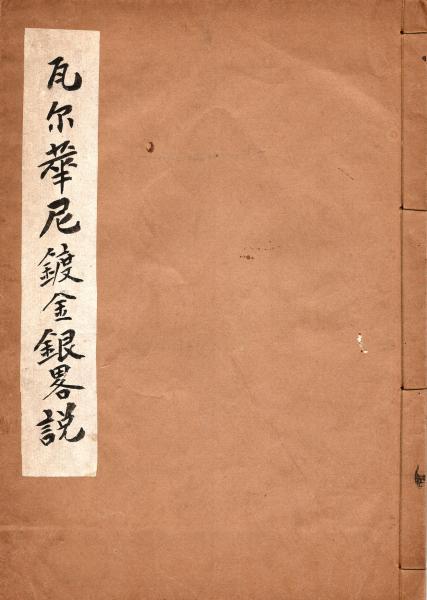 瓦尔華尼鍍金銀畧説